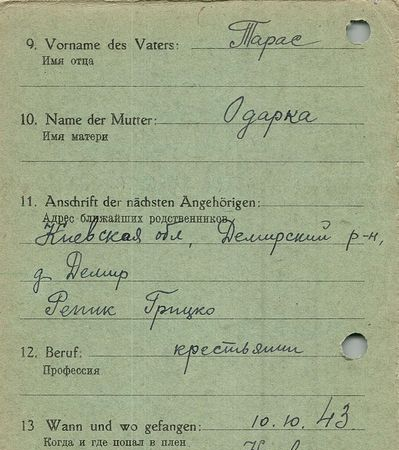 9. Vorname des Vaters: Тарас
Имя отца
10. Name der Mutter: Одарка
Имя матери
11. Anschrift der nächsten Angehörigen:
Адрес ближайших родственников
Киевская обл, Демирский р-н,
д Демир
Репик Грицко
12. Beruf: крестьянин
Профессия
13 Wann und wo gefangen: 10.10.43
Когда и где попал в плен